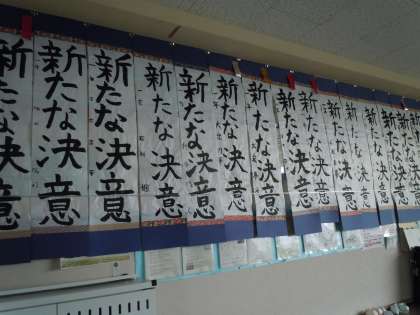 新たな決意
新たな決意
新たな決意
新たな決意
新たな決意
新たな決意
新たな決意
新たな決意
新たな決意
新たな決意
新たな決意
新たな決意
新たな決意
新たな決意